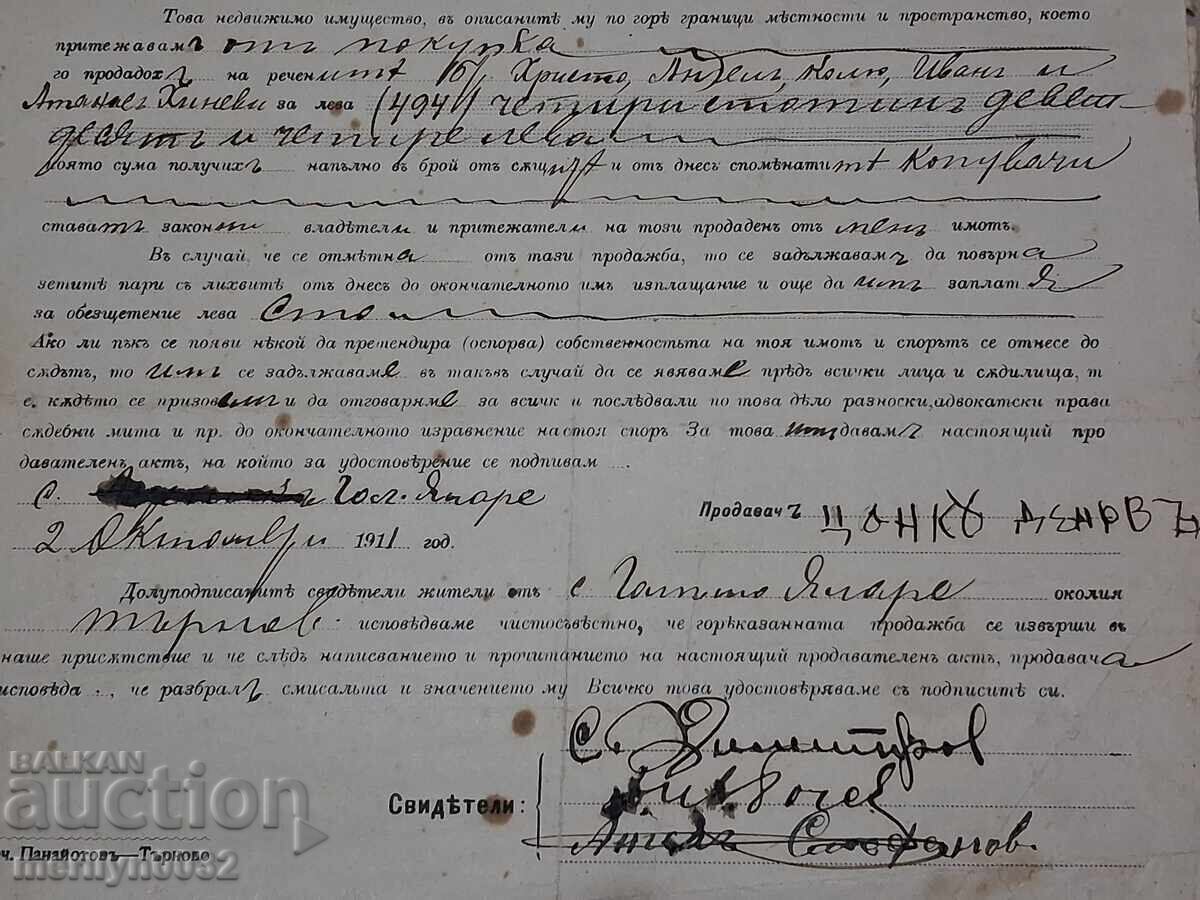 Това недвижимо имущество, въ описанитѣ му по горѣ граници мѣстности и пространство, което
притежавамъ отъ покупка
го продадохъ на реченитѣ Христо, Ангелъ, Колю, Иванъ и
Атанасъ Хиневи за лева (494) четиристотинъ девет-
десятъ и четире лева
която сума получихъ напълно въ брой отъ сѫщитѣ и отъ днесъ споменатитѣ Копувачи
ставатъ законни владѣтели и притежатели на този продаденъ отъ менъ имотъ.
Въ случай, че се отмѣтна отъ тази продажба, то се задължавамъ да повърна
зетитѣ пари съ лихвитѣ отъ днесъ до окончателното имъ изплащание и още да имъ заплатя
за обезщетение лева Сто
Ако ли пъкъ се появи нѣкой да претендира (оспорва) собственностьта на тоя имотъ и спорътъ се отнесе до
сѫдътъ, то имъ се задължаваме въ такъвъ случай да се явяваме прѣдъ всички лица и сѫдилища, т
е. кѫдѣто се призовемъ и да отговаряме за всичк и последвали по това дѣло разноски, адвокатски права
сѫдебни мита и пр. до окончателното изравнение настоя споръ За това имъ давамъ настоящий про
давателенъ актъ, на който за удостовѣрение се подпивам ...
с. Гол. Яларе
Продавачъ ЦОНКО ДЕНЮВЪ
2 Октомври 1911 год.
Долуподписанитѣ свидѣтели жители отъ с Голѣмо Яларе околия
Търнов. исповѣдваме чистосъвѣстно, че горѣказанната продажба се извърши въ
наше присѫтствие и че слѣдъ написванието и прочитанието на настоящий продавателенъ актъ, продавача
исповѣда .., че разбралъ смисальта и значението му Всичко това удостовѣряваме съ подписитѣ си.
С. Димитров
Свидѣтели:
Ангелъ Стефанов.
ч. Панайотовъ—Търново
BALKAN
auction
merhyh0032